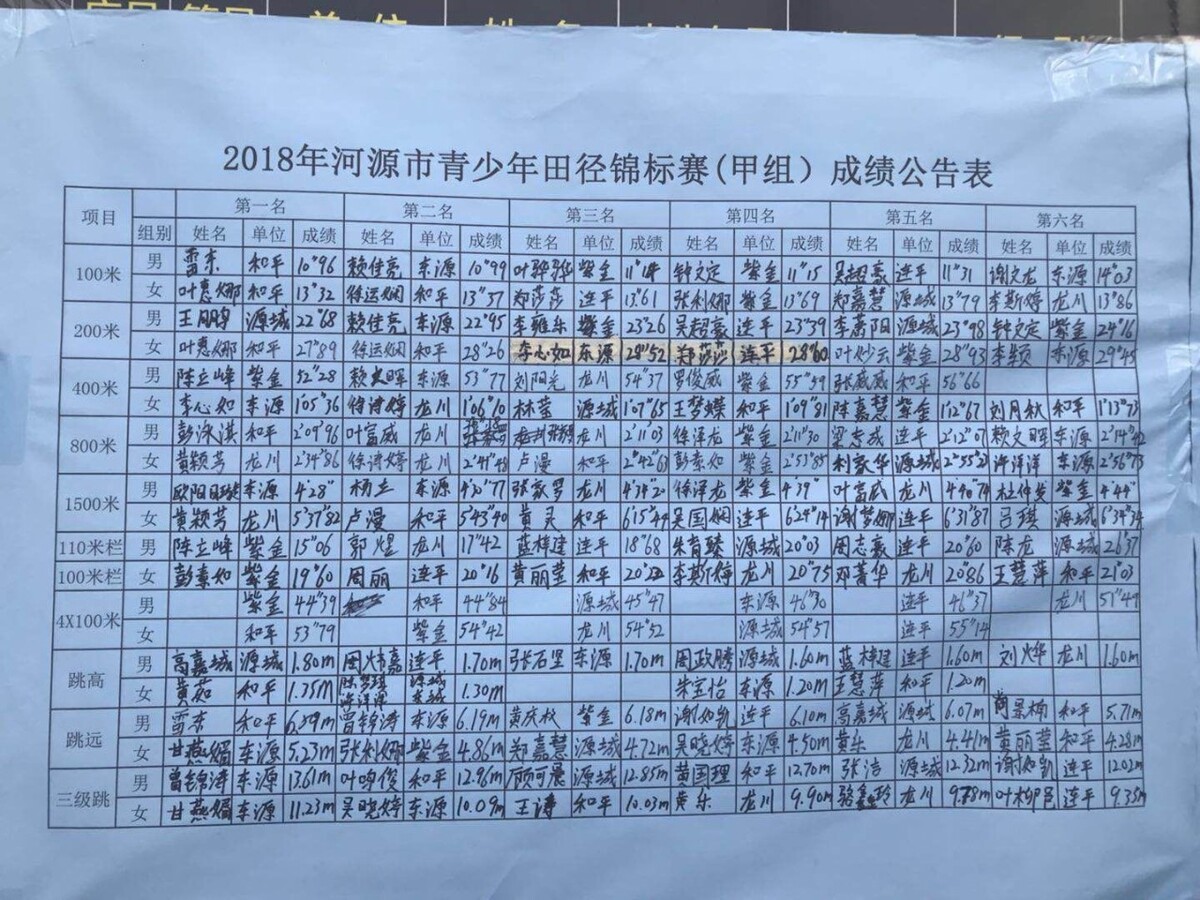 单 位 姓 名
2018年河源市青少年田径锦标赛(甲组）成绩公告表
项目 第一名 第二名 第三名 第四名 第五名 第六名
组别 姓名 单位 成绩 姓名 单位 成绩 姓名 单位 成绩 姓名 单位 成绩 姓名 单位 成绩 姓名 单位 成绩
100米 男 雷东 和平 10"96 赖佳亮 东源 10"99 叶骅骅 紫金 11"14 钟文定 紫金 11"15 吴超豪 连平 11"31 谢文龙 东源 14"03
女 叶惠娜 和平 13"32 徐运娴 和平 13"37 郑莎莎 连平 13"61 张利娜 紫金 13"69 郑嘉慧 源城 13"79 李斯婷 龙川 13"86
200米 男 王鹏 源城 22"68 赖佳亮 东源 22"95 李雍乐 紫金 23"26 吴超豪 连平 23"39 李萧阳 源城 23"98 钟文定 紫金 24"16
女 叶惠娜 和平 27"89 徐运娴 和平 28"26 李心如 东源 28"52 郑莎莎 连平 28"60 叶妙云 紫金 28"93 李颖 东源 29"45
400米 男 陈立峰 紫金 52"28 赖文晖 东源 53"77 刘阳光 龙川 54"37 罗俊威 紫金 55"59 张威威 和平 56"66
女 李心如 东源 1'05"36 徐诗婷 龙川 1'06"10 林莹 源城 1'07"65 王梦蝶 和平 1'09"81 陈嘉慧 紫金 1'12"67 刘月秋 和平 1'13"73
800米 男 彭涂淇 和平 2'09"96 叶富威 龙川 龙川 2'11"03 徐泽龙 紫金 2'11"30 梁志成 连平 2'12"07 赖文晖 东源 2'14"42
女 黄颖芳 龙川 2'34"86 徐诗婷 龙川 2'41"48 卢漫 和平 2'42"63 彭素如 紫金 2'53"85 利家华 源城 2'55"21 许洋洋 东源 2'56"73
1500米 男 欧阳 东源 4'28" 杨立 东源 4'30"77 张家罗 龙川 4'34"20 徐泽龙 紫金 4'39" 叶富威 龙川 4'40"74 杜仲发 紫金 4'44"
女 黄颖芳 龙川 5'37"82 卢漫 和平 5'43"40 黄灵 和平 6'15"49 吴国娴 连平 6'24"14 谢梦娜 连平 6'31"87 吕琪 源城 6'34"34
110米栏 男 陈立峰 紫金 15"06 郭煜 龙川 17"42 蓝梓建 连平 18"68 朱育臻 源城 20"03 周志豪 连平 20"60 陈龙 源城 26"37
100米栏 女 彭素如 紫金 19"60 周丽 连平 20"16 黄丽莹 和平 20"22 李斯婷 龙川 20"75 邓菁华 龙川 20"86 王慧萍 和平 21"03
4X100米 男 紫金 44"39 和平 44"84 源城 45"47 东源 46"30 连平 46"37 龙川 51"49
女 和平 53"79 紫金 54"42 龙川 54"52 源城 54"57 连平 55"14
跳高 男 高嘉城 源城 1.80m 周炜嘉 连平 1.70m 张石坚 东源 1.70m 周政腾 源城 1.60m 蓝梓建 连平 1.60m 刘烨 龙川 1.60m
女 黄茹 和平 1.35m 源城 东源 1.30m 朱宝怡 东源 1.20m 王慧萍 和平 1.20m
跳远 男 雷东 和平 6.59m 曾锦涛 东源 6.19m 黄庆权 紫金 6.18m 谢如凯 连平 6.10m 高嘉城 源城 6.07m 景楠 和平 5.71m
女 甘燕媚 东源 5.23m 张利娜 紫金 4.86m 郑嘉慧 源城 4.72m 吴晓婷 东源 4.50m 黄乐 龙川 4.41m 黄丽莹 和平 4.28m
三级跳 男 曾锦涛 东源 13.61m 叶鸣俊 和平 12.96m 顾可晨 源城 12.85m 黄国理 和平 12.70m 张洁 源城 12.32m 谢如凯 连平 12.02m
女 甘燕媚 东源 11.23m 吴晓婷 东源 10.09m 王涛 和平 10.03m 黄乐 龙川 9.90m 骆 玲 龙川 9.78m 叶柳邑 连平 9.35m